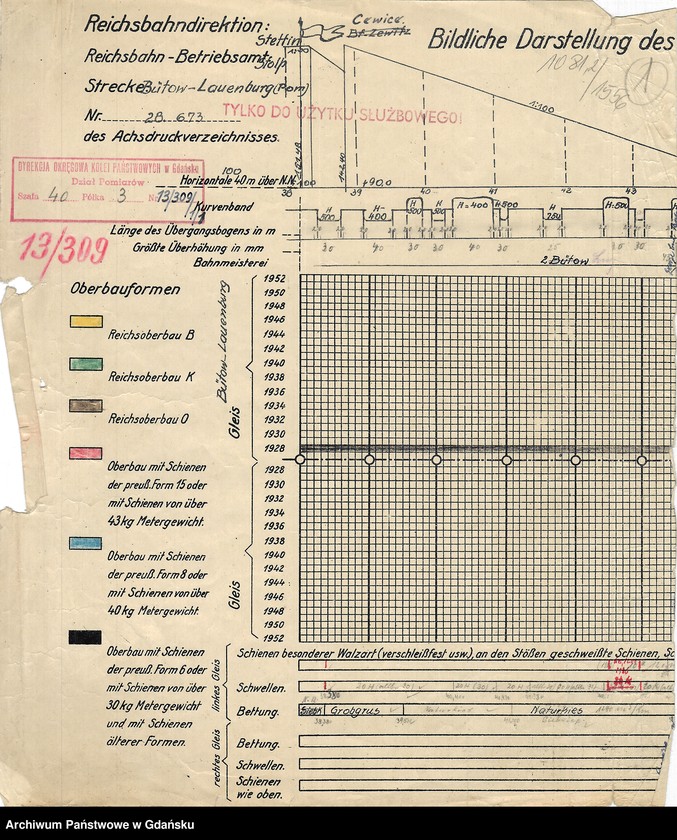 Reichsbahndirektion:
Stettin
Cewice
Bf. Lewitz
Bildliche Darstellung des
Reichsbahn-Betriebsamt:
Stolp
1081/1956
1
Strecke Bütow-Lauenburg (Pom)
1:100
Nr. 2B. 673
TYLKO DO UŻYTKU SŁUŻBOWEGO!
des Achsdruckverzeichnisses.
DYREKCJA OKRĘGOWA KOLEI PAŃSTWOWYCH w Gdańsku
Dział Pomiarów
Szafa 40 Półka 3 Nr 13/309/1
100
Horizontale 40 m über N.N.
+90,0
38 39 40 41 42 43
13/309
Kurvenband
H 500 H- 400 H 500 H 500 H=400 H 500 H 250 H 500
Länge des Übergangsbogens in m
Größte Überhöhung in mm
30 40 30 30 40 30 25 30
Bahnmeisterei
2. Bütow
Oberbauformen
Reichsoberbau B
Reichsoberbau K
Reichsoberbau O
Oberbau mit Schienen
der preuß. Form 15 oder
mit Schienen von über
43 kg Metergewicht.
Oberbau mit Schienen
der preuß. Form 8 oder
mit Schienen von über
40 kg Metergewicht.
Oberbau mit Schienen
der preuß. Form 6 oder
mit Schienen von über
30 kg Metergewicht
und mit Schienen
älterer Formen.
Gleis Bütow-Lauenburg
1952
1950
1948
1946
1944
1942
1940
1938
1936
1934
1932
1930
1928
Gleis
1928
1930
1932
1934
1936
1938
1940
1942
1944
1946
1948
1950
1952
linkes Gleis
Schienen besonderer Walzart (verschleißfest usw.), an den Stößen geschweißte Schienen, Sc
Schwellen.
Bettung.
Grobgrus
Naturkies
rechtes Gleis
Bettung.
Schwellen.
Schienen
wie oben.
Archiwum Państwowe w Gdańsku